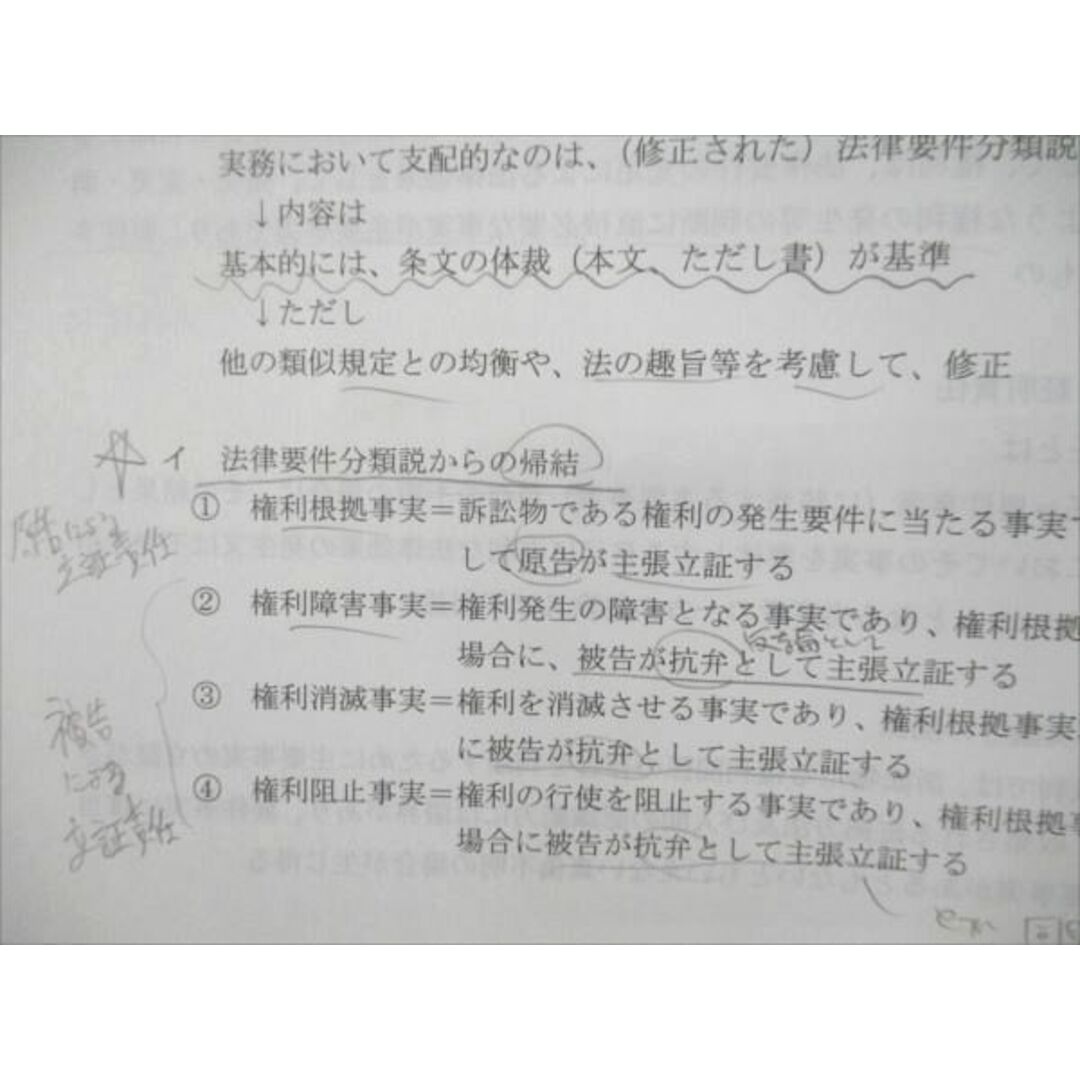 実務において支配的なのは、(修正された)法律要件分類説
↓内容は
基本的には、条文の体裁(本文、ただし書)が基準
↓ただし
他の類似規定との均衡や、法の趣旨等を考慮して、修正
イ 法律要件分類説からの帰結
① 権利根拠事実=訴訟物である権利の発生要件に当たる事実で
して原告が主張立証する
原告による
立証責任
② 権利障害事実=権利発生の障害となる事実であり、権利根拠
場合に、被告が抗弁として主張立証する
③ 権利消滅事実=権利を消滅させる事実であり、権利根拠事実
に被告が抗弁として主張立証する
被告
による
立証責任
④ 権利阻止事実=権利の行使を阻止する事実であり、権利根拠事
場合に被告が抗弁として主張立証する